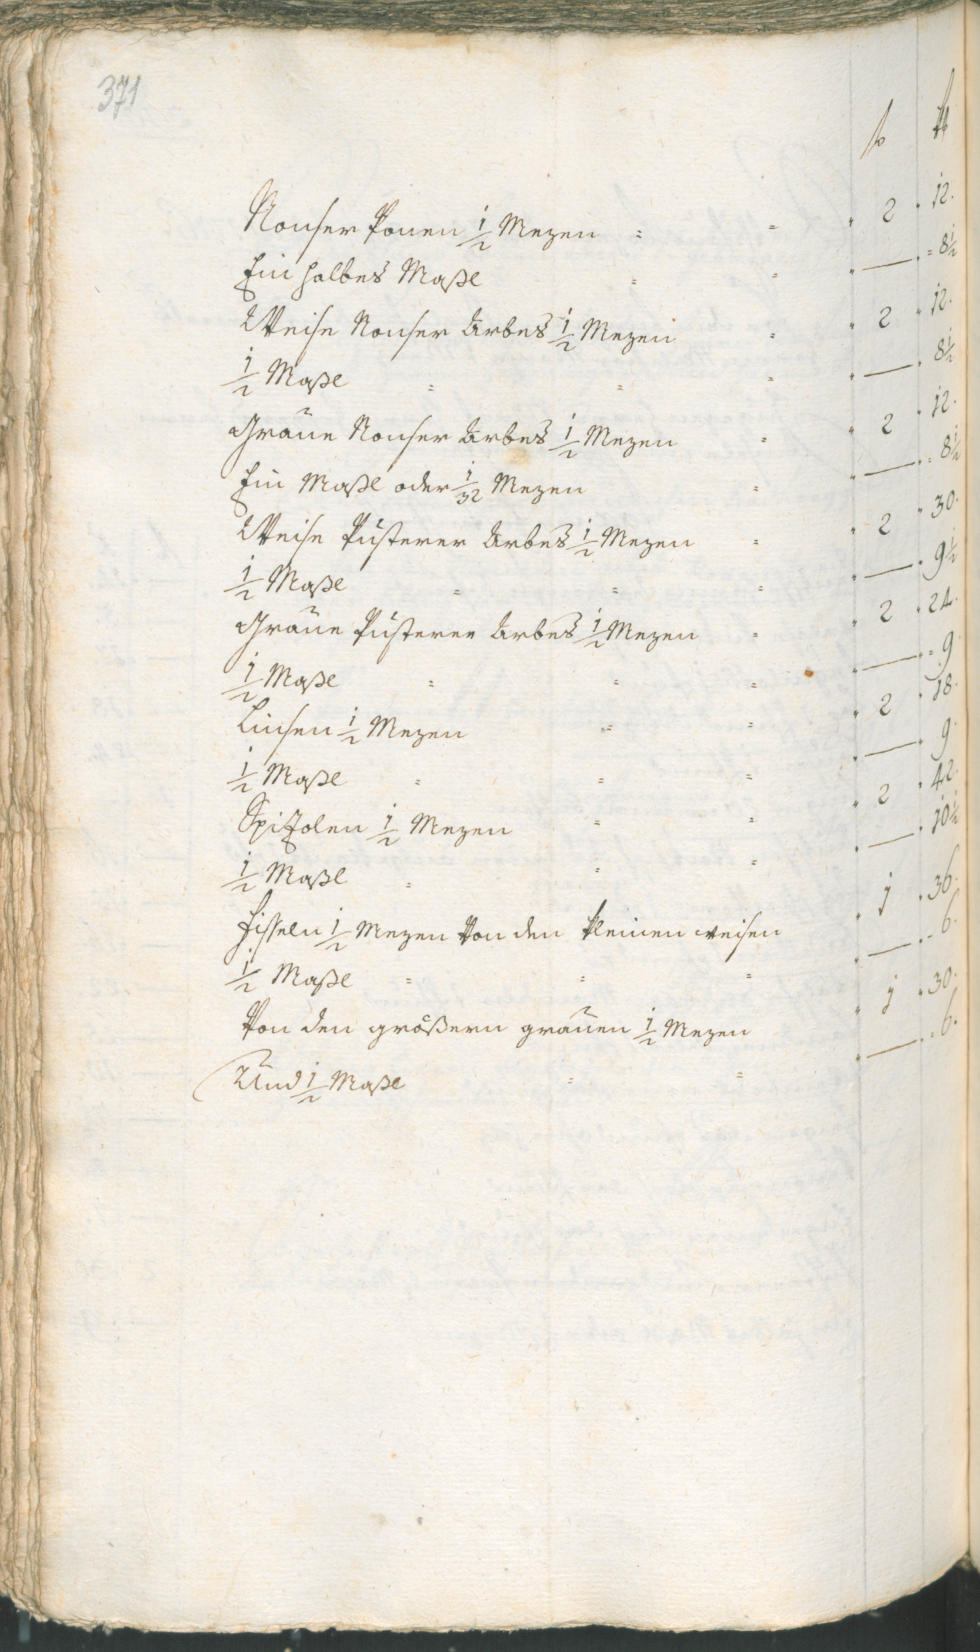 371
f kr
Nonser Ponen 1/2 Mezen = = . 2 . 12.
Ein halbes Maßl = = . — . = 8 1/2
Weise Nonser Arbes 1/2 Mezen = . 2 . 12.
1/2 Maßl = = = . — . 8 1/2
Graüe Nonser Arbes 1/2 Mezen = . 2 . 12.
Ein Maßl oder 1/32 Mezen = . — . = 8 1/2
Weise Pusterer Arbes 1/2 Mezen = . 2 . 30.
1/2 Maßl = = = . — . 9 1/2
Graüe Pusterer Arbes 1/2 Mezen = . 2 . 24.
1/2 Maßl = = = . — . = 9
Linsen 1/2 Mezen = = . 2 . 18.
1/2 Maßl = = = . — . 9.
Spizolen 1/2 Mezen = = . 2 . 42.
1/2 Maßl = = = . — . 10 1/2
Fisseln 1/2 Mezen von den kleinen weisen . 1 . 36.
1/2 Maßl = = = . — . = 6.
Von den größern graüen 1/2 Mezen . 1 . 30.
Und 1/2 Maßl = = . — . = 6.